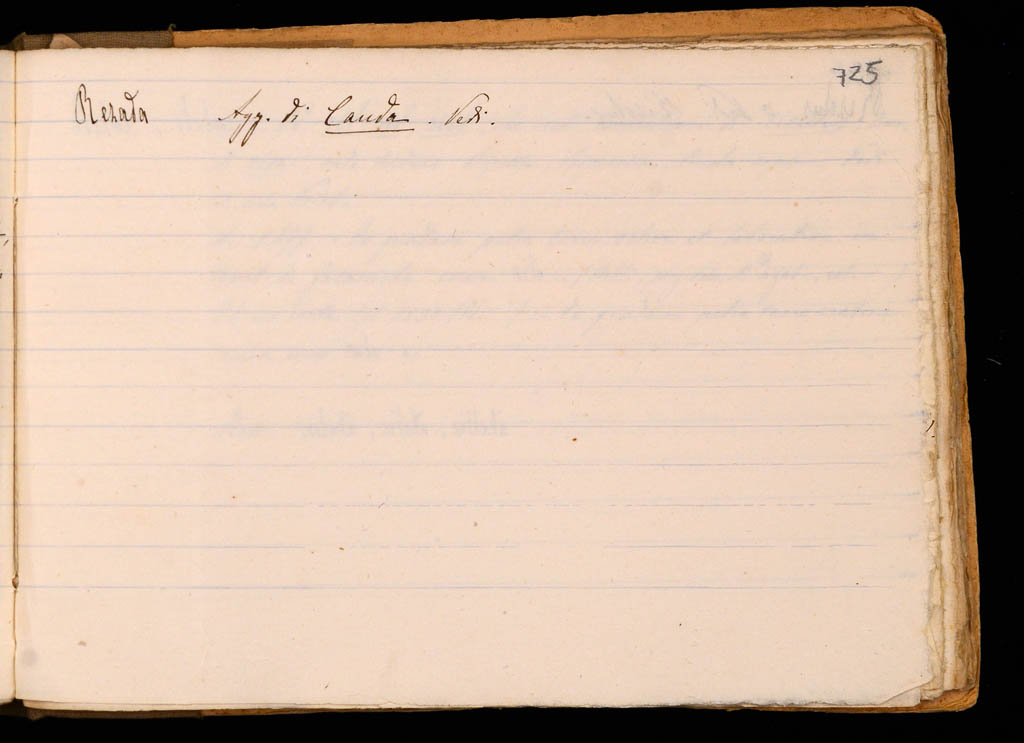 725
Rezada Agg. di Cauda. Vedi.